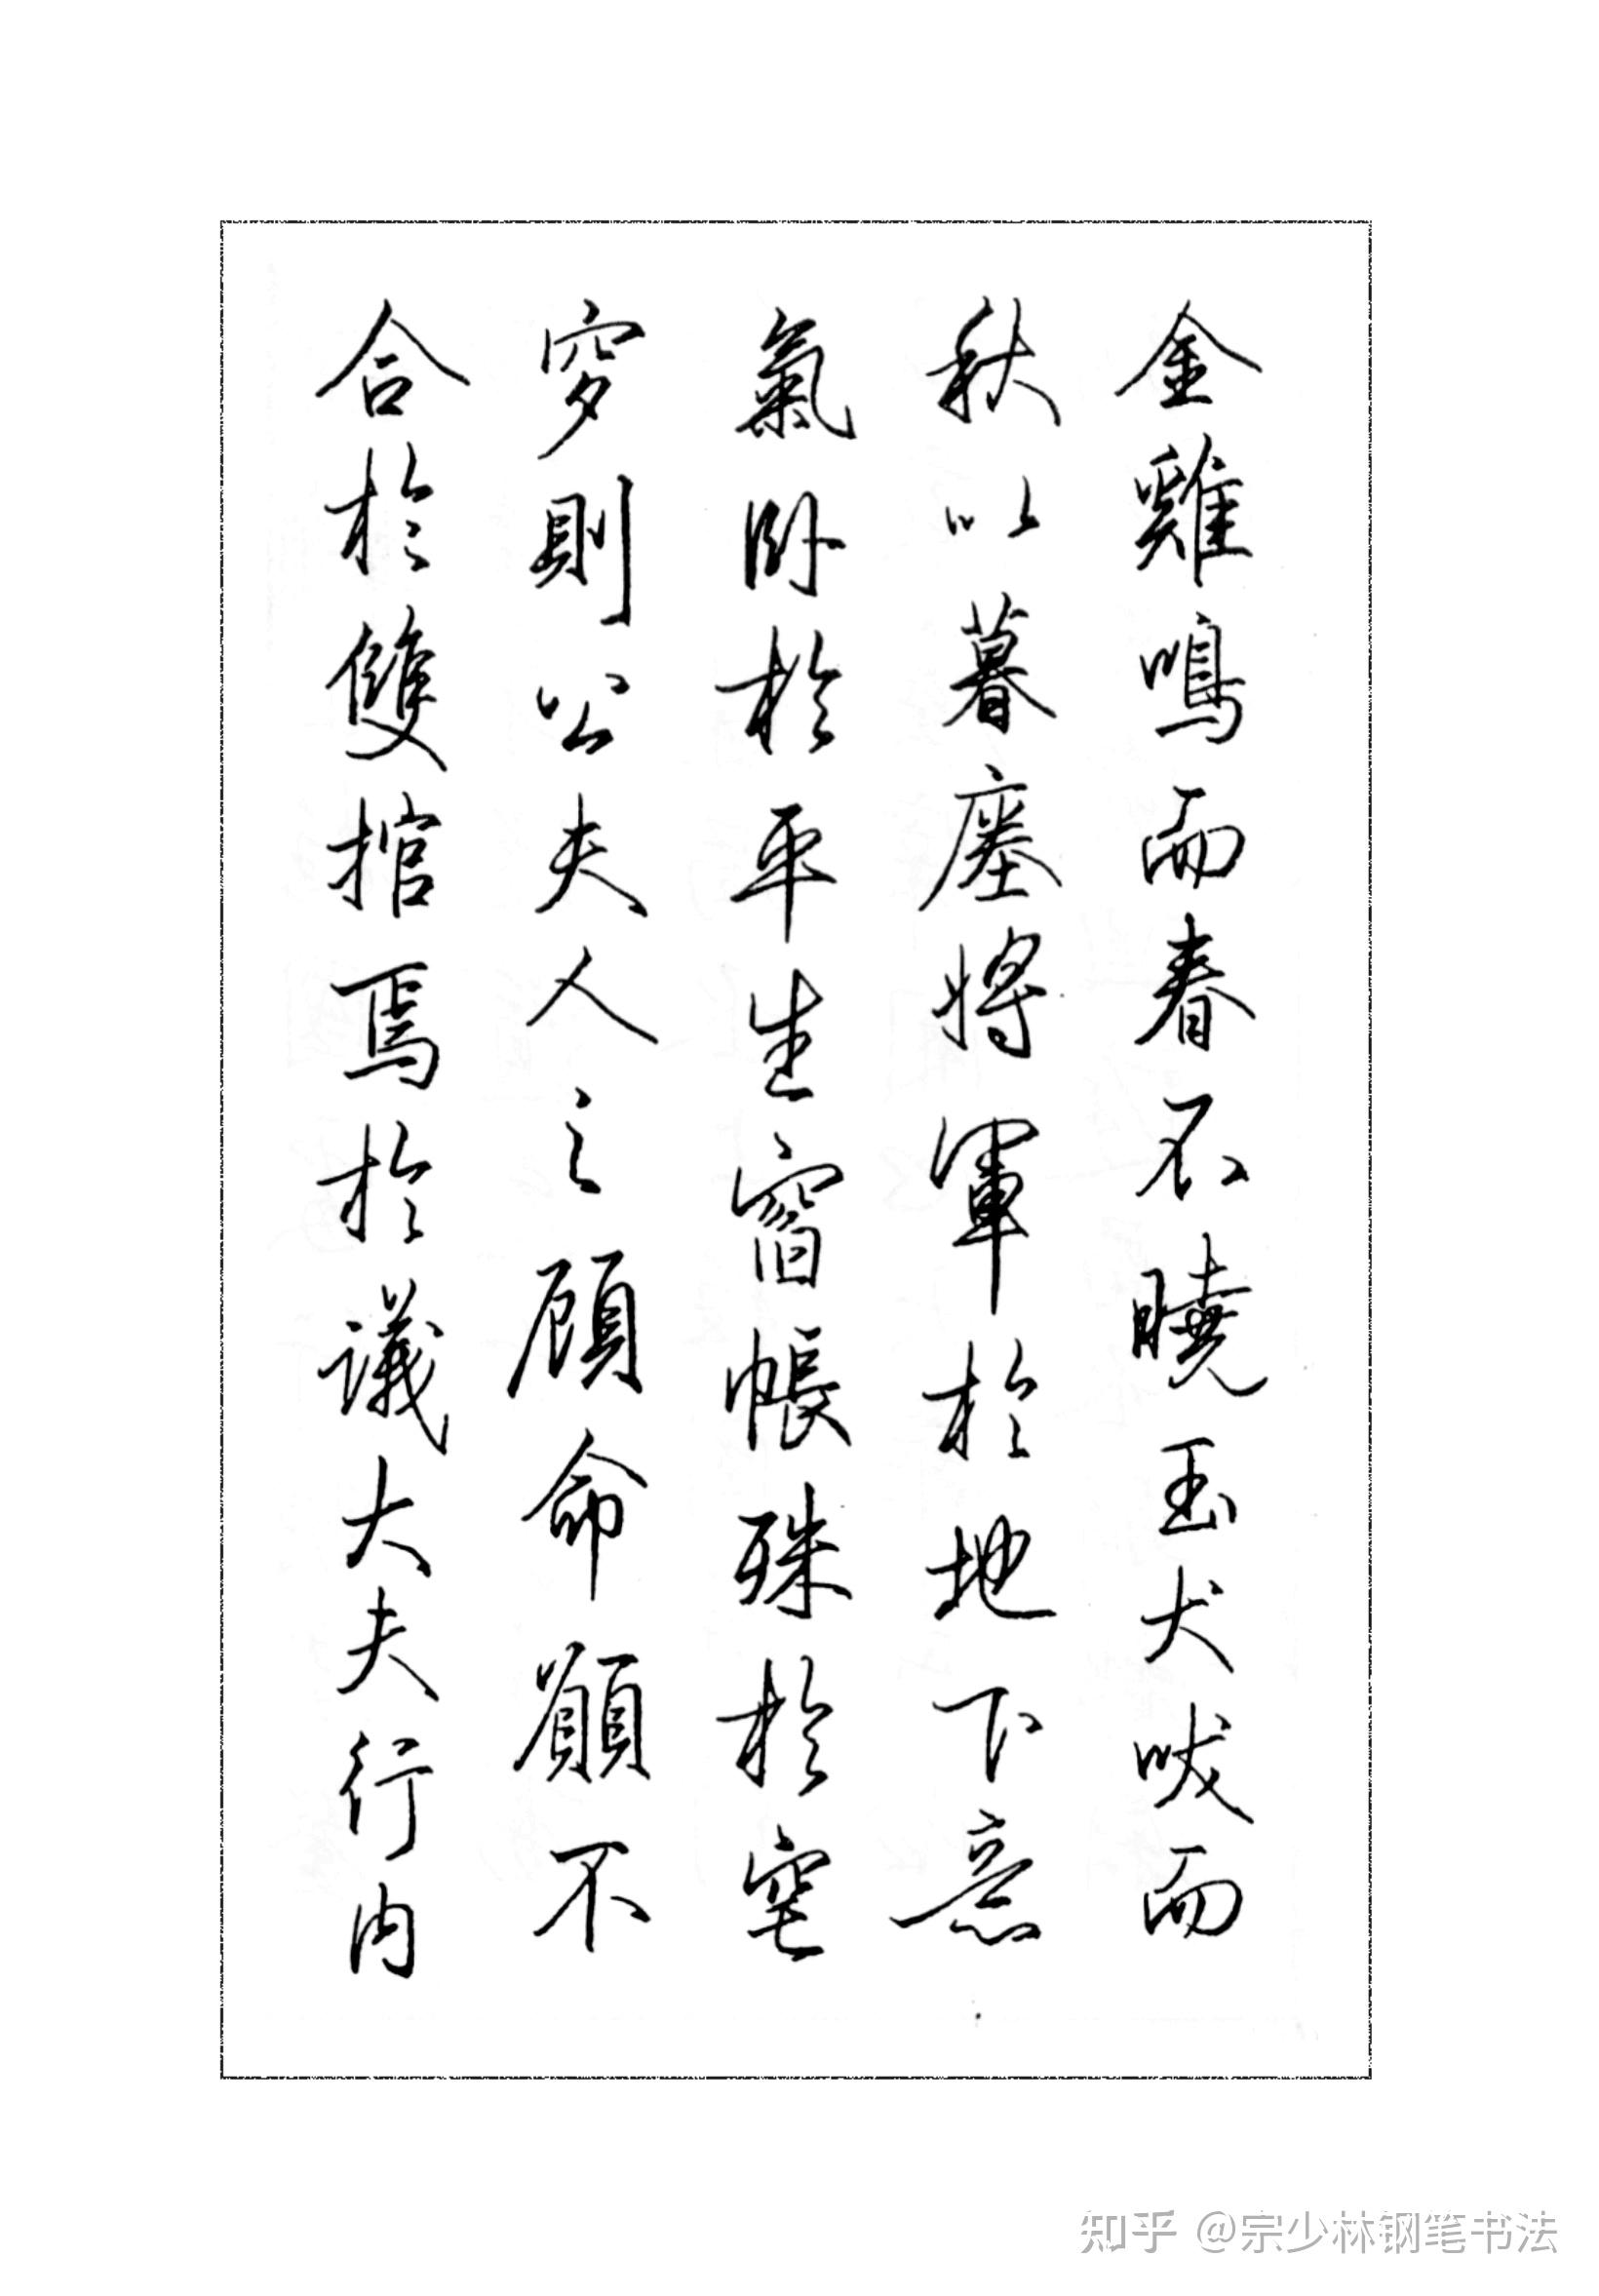 金雞鳴而春不曉玉犬吠而
秋以暮瘞將軍於地下意
氣卧於平生窗帳殊於窀
穸則公夫人之顧命願不
合於雙棺焉於議大夫行内
知乎 @宗少林钢笔书法